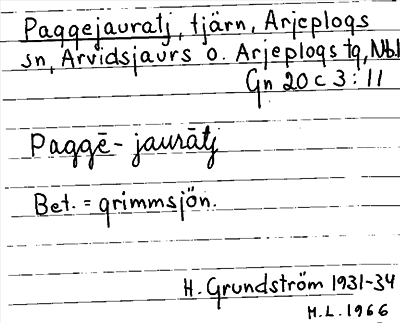 Paggejauratj, tjärn, Arjeplogs
sn, Arvidsjaurs o. Arjeplogs tg, Nbl
Gn 20 C 3 : 11
Paggē- jaurātj
Bet. = grimmsjön.
H. Grundström 1931-34
H.L. 1966